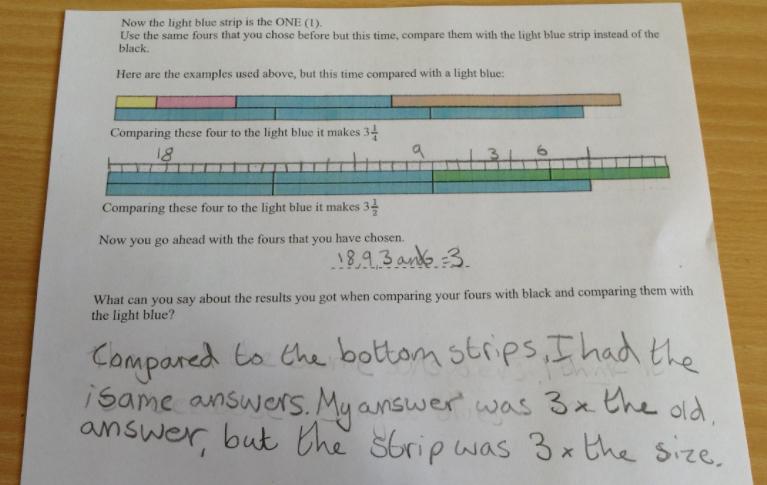 Now the light blue strip is the ONE (1).
Use the same fours that you chose before but this time, compare them with the light blue strip instead of the
black.
Here are the examples used above, but this time compared with a light blue:
Comparing these four to the light blue it makes 3 1/4
18 9 3 6
Comparing these four to the light blue it makes 3 1/2
Now you go ahead with the fours that you have chosen.
18,9,3 and 6 = 3
What can you say about the results you got when comparing your fours with black and comparing them with
the light blue?
Compared to the bottom strips, I had the
same answers. My answer was 3x the old
answer, but the strip was 3x the size.